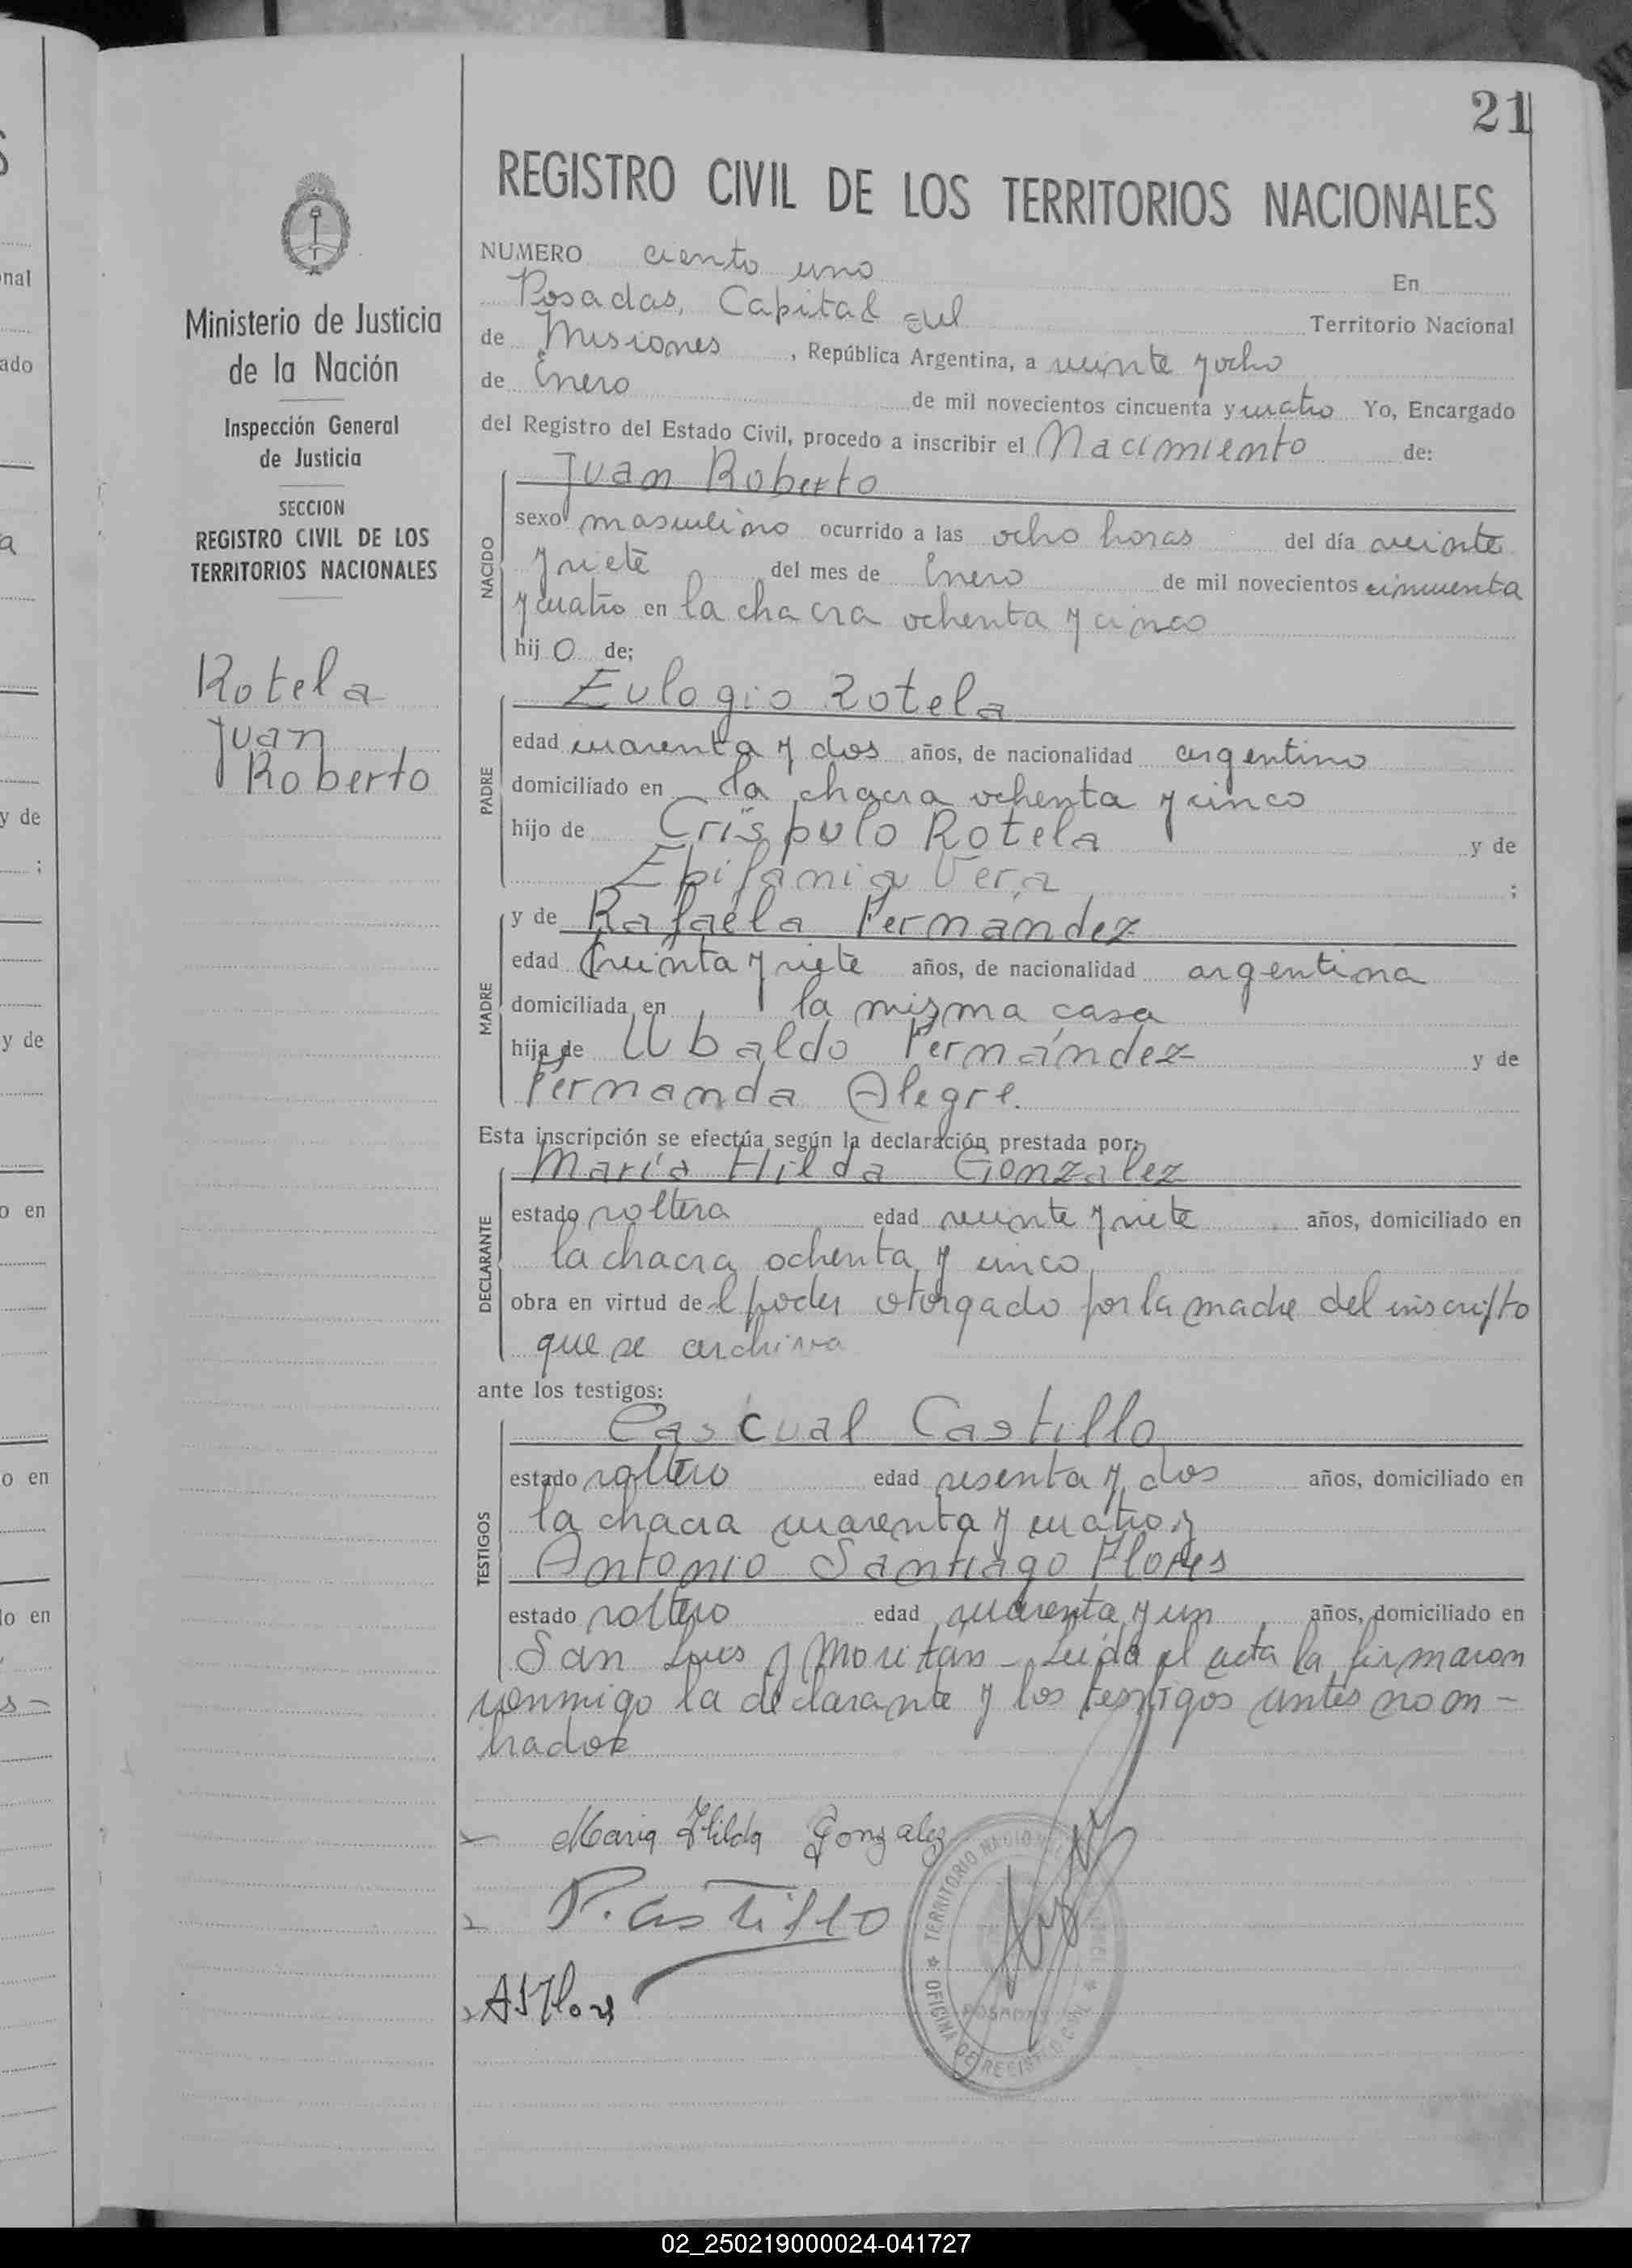 21
REGISTRO CIVIL DE LOS TERRITORIOS NACIONALES
Ministerio de Justicia
de la Nación
Inspección General
de Justicia
SECCION
REGISTRO CIVIL DE LOS
TERRITORIOS NACIONALES
Rotela
Juan
Roberto
NUMERO ciento uno En
Posadas, Capital del Territorio Nacional
de Misiones, República Argentina, a veinte y ocho
de Enero de mil novecientos cincuenta y cuatro Yo, Encargado
del Registro del Estado Civil, procedo a inscribir el Nacimiento de:
NACIDO
Juan Roberto
sexo masculino ocurrido a las ocho horas del día veinte
y siete del mes de Enero de mil novecientos cincuenta
y cuatro en la chacra ochenta y cinco
hijo de;
PADRE
Eulogio Rotela
edad cuarenta y dos años, de nacionalidad argentino
domiciliado en la chacra ochenta y cinco
hijo de Críspulo Rotela y de
Epifania Vera ;
MADRE
y de Rafaela Fernández
edad treinta y siete años, de nacionalidad argentina
domiciliada en la misma casa
hija de Ubaldo Fernández y de
Fernanda Alegre.
Esta inscripción se efectúa según la declaración prestada por:
DECLARANTE
María Hilda Gonzalez
estado soltera edad veinte y siete años, domiciliado en
la chacra ochenta y cinco
obra en virtud del poder otorgado por la madre del inscripto
que se archiva
ante los testigos:
TESTIGOS
Pascual Castillo
estado soltero edad sesenta y dos años, domiciliado en
la chacra cuarenta y cuatro y
Antonio Santiago Flores
estado soltero edad cuarenta y un años, domiciliado en
San Luis y Moritán - Leída el acta la firmaron
conmigo la declarante y los testigos antes nom-
brados
Maria Hilda Gonzalez
P. Castillo
ASFlores
TERRITORIO NACIONAL
POSADAS
OFICINA DE REGISTRO CIVIL
nal
ado
a
y de
;
y de
o en
o en
lo en
02_250219000024-041727